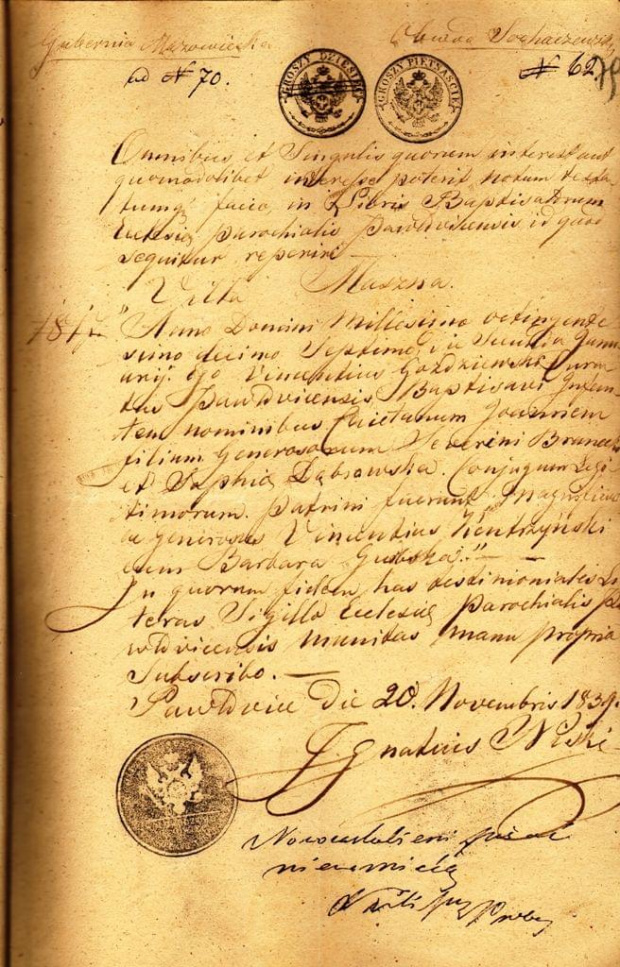 Gubernia Mazowiecka
Obwod Sochaczewski
ad N 70.
N 62
GROSZY DZIESIĘĆ
GROSZY PIĘTNAŚCIE
Omnibus et Singulis quorum interest aut
quomodolibet interesse poterit notum testa
tumq facio, in Libris Baptisatorum
Ecclesię parochialis Pawłovicensis id quod
sequitur reperiri
Villa Maszna.
1817 "Anno Domini Millesimo octingente
simo decimo Septimo, die Secunda Janu
arij. Ego Vincentius Gozdziewski Cura
tus Pawłovicensis Baptisavi Infan
tem nominibus Caietanum Joannem
filium Generosorum Severini
et Sophię Dąbrowska. Conjugum Legi
timorum. Patrini fuerunt: Magnificus
ac generosus Vincentius Kentrzyński
cum Barbara."
In quorum fidem has testimoniales Li
teras Sigillo Ecclesię Parochialis Pa
włovicensis munitas manu propria
Subscribo.
Pawłovice Die 20. Novembris 1839.
Ignatius
Nowozaślubieni pisać
nieumieją